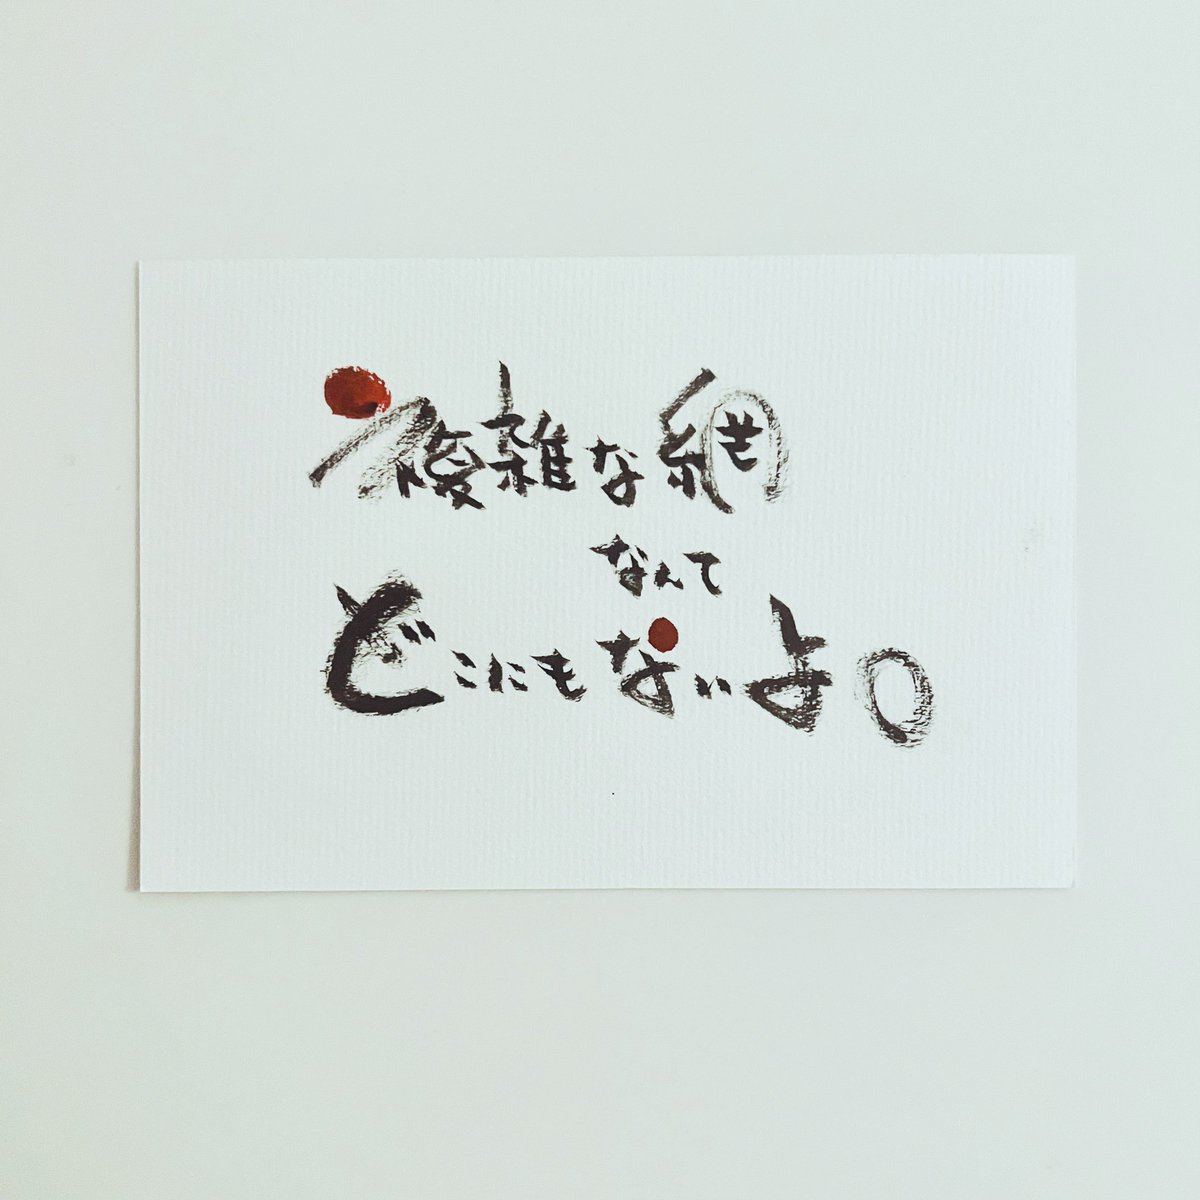 複雑な網
なんて
どこにもないよ。